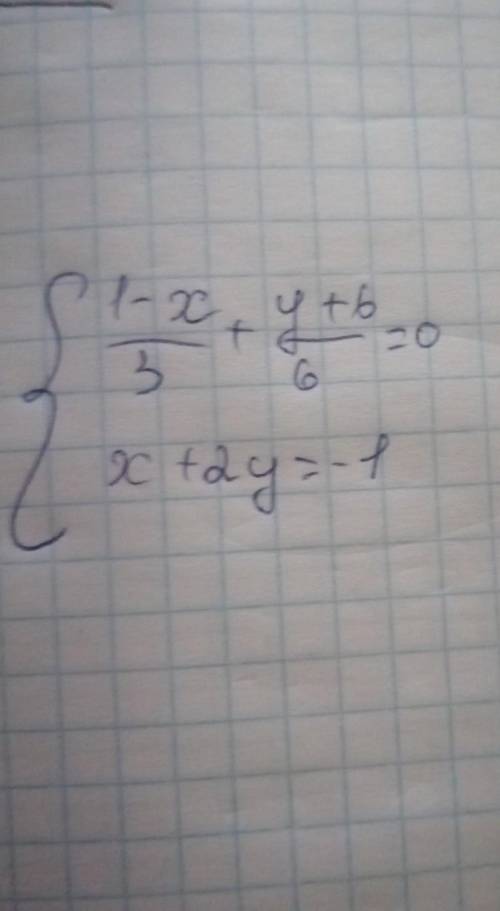 { (1-x)/3 + (y+6)/6 = 0
x + 2y = -1